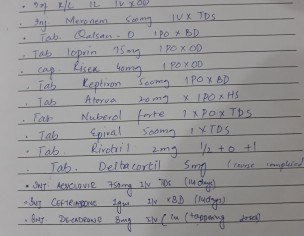 • Inj R/L 1L IV x OD
• Inj Meronem 500mg IV x TDS
• Tab. Qalsan-D 1PO x BD
• Tab loprin 75mg 1PO x OD
• cap Risek 40mg 1PO x OD
• Tab Keptron 500mg 1PO x BD
• Tab Aterva 20mg x 1PO x HS
• Tab Nuberol forte 1 x PO x TDS
• Tab Epiral 500mg 1 x TDS
• Tab. Rivotril 2mg 1/2 + 0 + 1
• Tab. Deltacortil 5mg (course completed)
• Inj ACYCLOVIR 750mg IV TDS (14 days)
• Inj CEFTRIAXONE 2gm IV x BD (14 days)
• Inj DECADRONE 8mg IV (tappering dose)